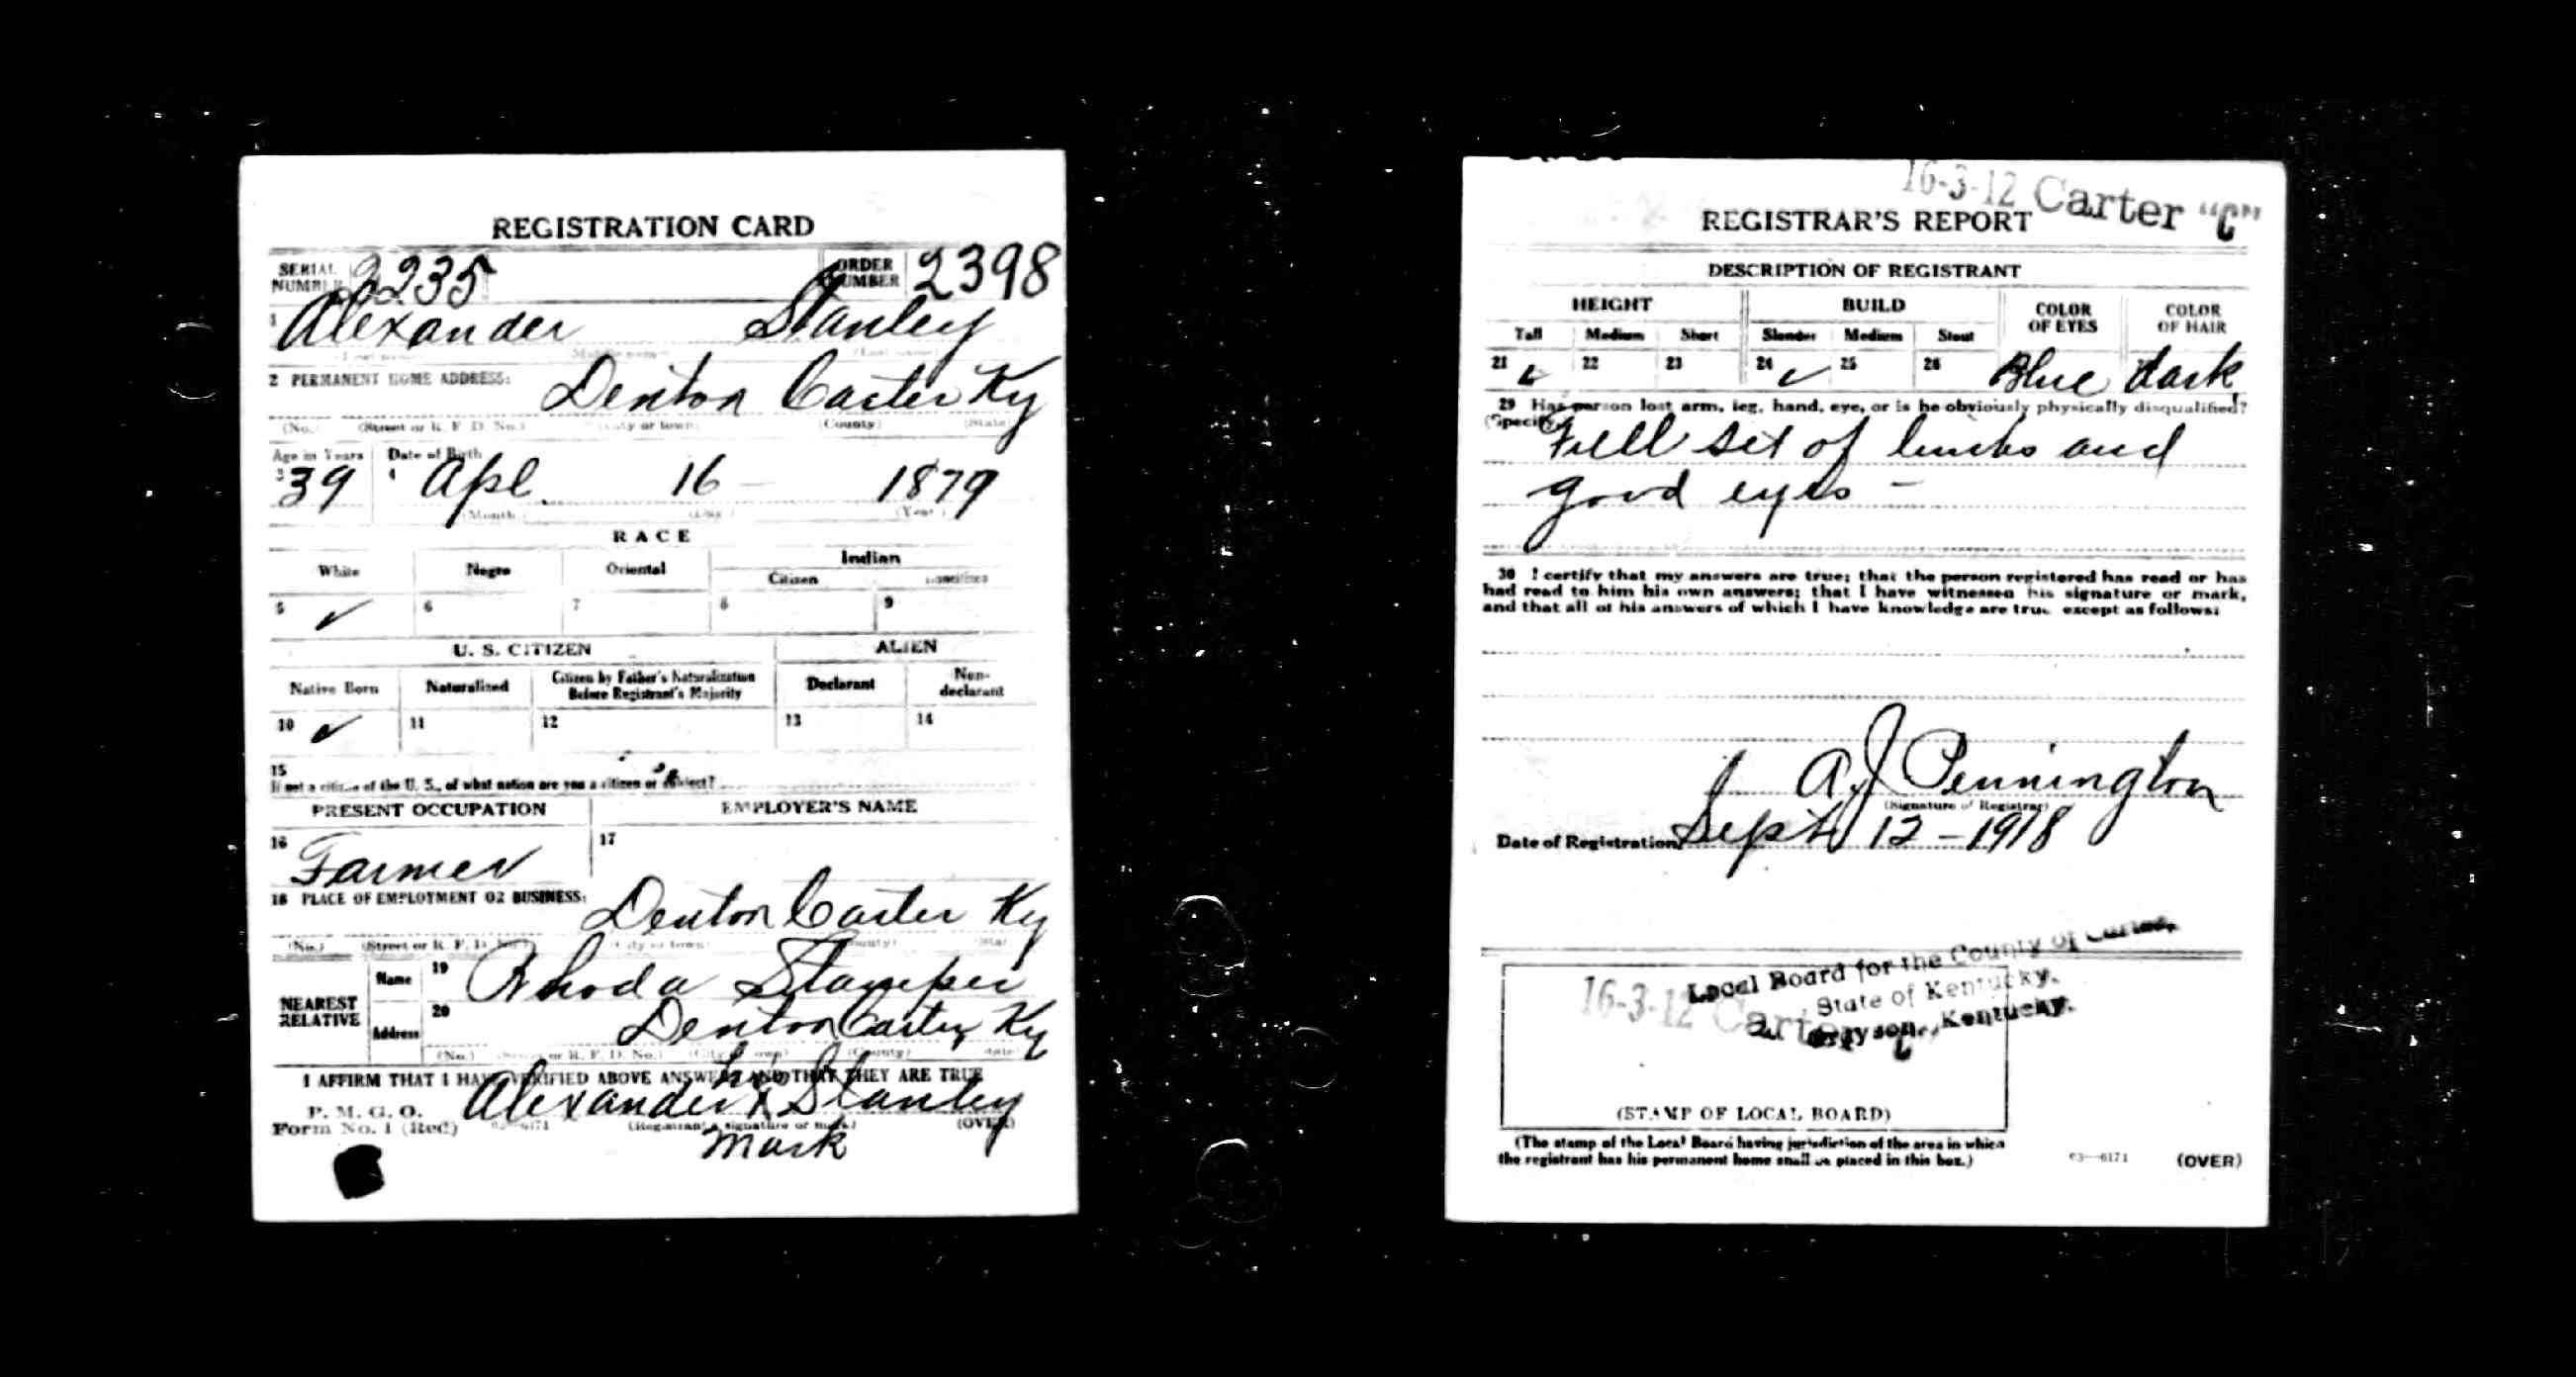 REGISTRATION CARD
SERIAL NUMBER 2235 ORDER NUMBER 2398
1 Alexander Stanley
(First name) (Middle name) (Last name)
2 PERMANENT HOME ADDRESS:
Denton Carter Ky
(No.) (Street or R. F. D. No.) (City or town) (County) (State)
Age in Years Date of Birth
3 39 4 Apl. 16 - 1879
(Month) (Day) (Year)
RACE
White Negro Oriental Indian
Citizen Noncitizen
5 ✓ 6 7 8 9
U. S. CITIZEN ALIEN
Native Born Naturalized Citizen by Father's Naturalization Before Registrant's Majority Declarant Non-declarant
10 ✓ 11 12 13 14
15
If not a citizen of the U. S., of what nation are you a citizen or subject?
PRESENT OCCUPATION EMPLOYER'S NAME
16 Farmer 17
18 PLACE OF EMPLOYMENT OR BUSINESS:
Denton Carter Ky
(No.) (Street or R. F. D. No.) (City or town) (County) (State)
NEAREST RELATIVE
Name 19 Rhoda Stamper
Address 20 Denton Carter Ky
(No.) (Street or R. F. D. No.) (City or town) (County) (State)
I AFFIRM THAT I HAVE VERIFIED ABOVE ANSWERS AND THAT THEY ARE TRUE
P. M. G. O.
Form No. 1 (Red)
his
Alexander x Stanley
(Registrant's signature or mark) (OVER)
mark
16-3-12 Carter "C"
REGISTRAR'S REPORT
DESCRIPTION OF REGISTRANT
HEIGHT BUILD COLOR OF EYES COLOR OF HAIR
Tall Medium Short Slender Medium Stout
21 ✓ 22 23 24 ✓ 25 26 Blue dark
29 Has person lost arm, leg, hand, eye, or is he obviously physically disqualified?
(Specify)
Full set of limbs and
good eyes -
30 I certify that my answers are true; that the person registered has read or has
had read to him his own answers; that I have witnessed his signature or mark,
and that all of his answers of which I have knowledge are true except as follows:
A J Pennington
(Signature of Registrar)
Date of Registration Sept 12 - 1918
Local Board for the County of Carter,
State of Kentucky.
Grayson, Kentucky.
16-3-12 Carter "C"
(STAMP OF LOCAL BOARD)
(The stamp of the Local Board having jurisdiction of the area in which
the registrant has his permanent home shall be placed in this box.)
03—6171 (OVER)